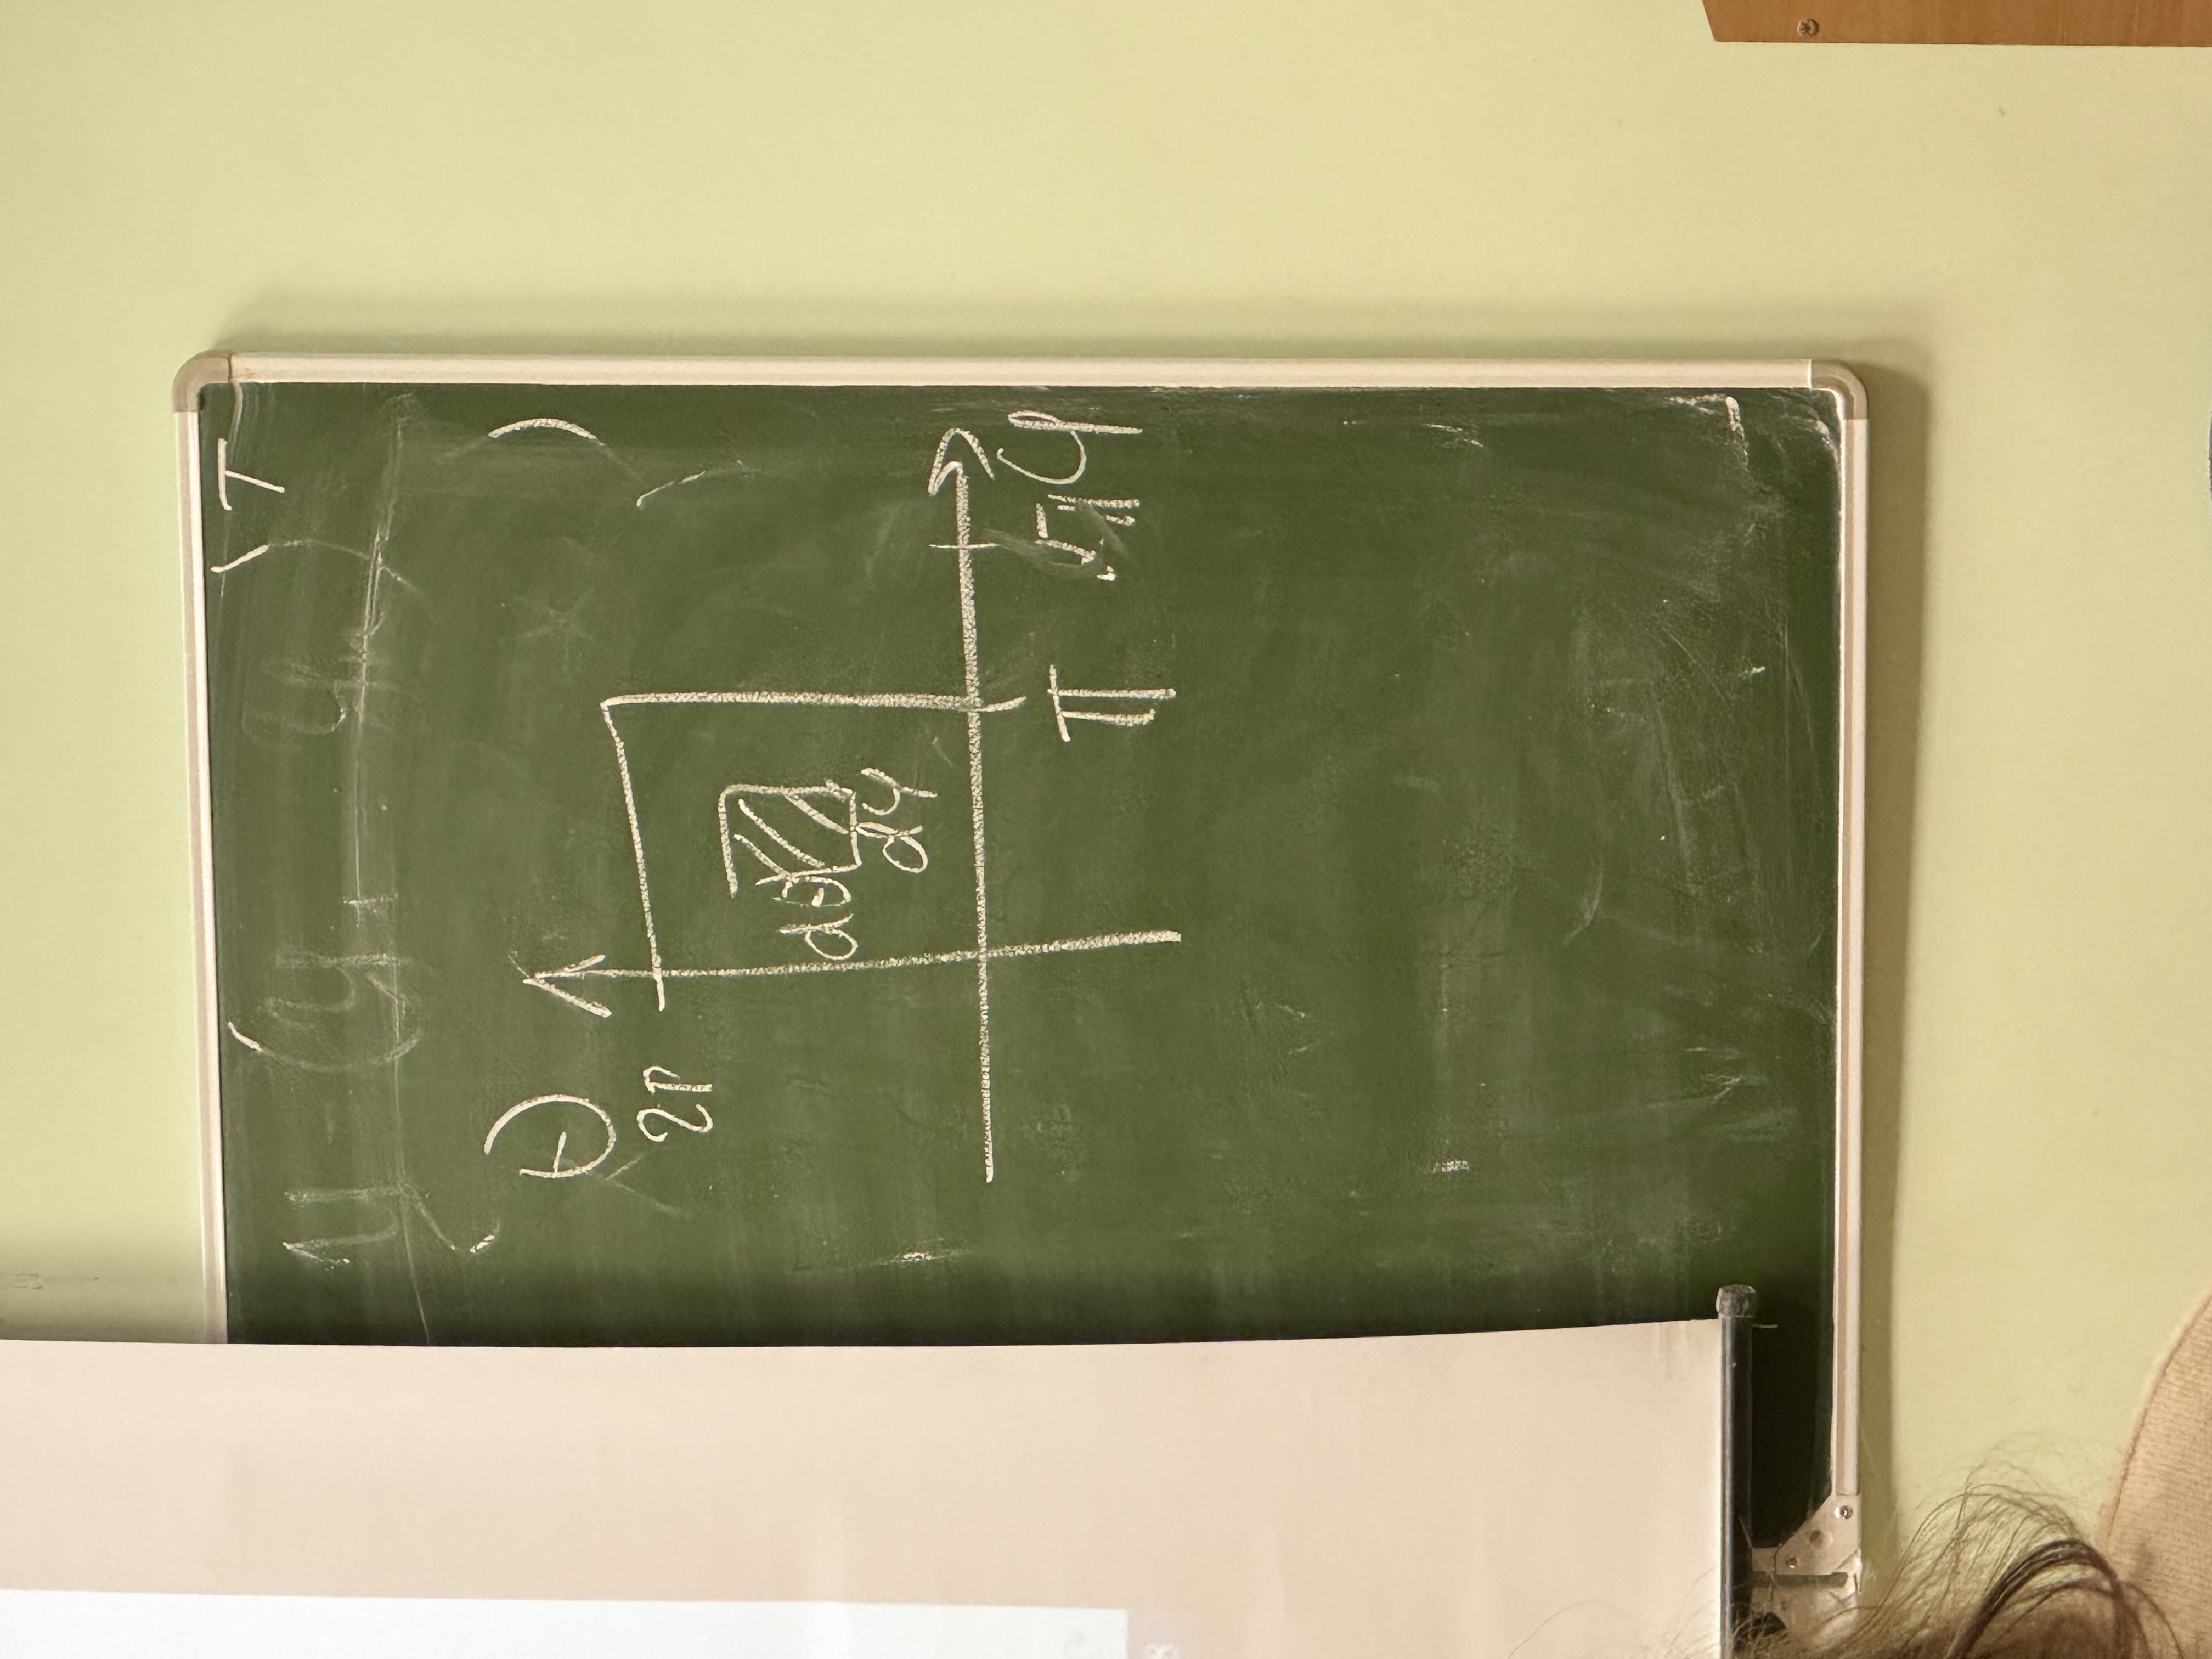 y = (y₁ yₙ)ᵀ
Θ
2P
dΘ
dφ
π φ